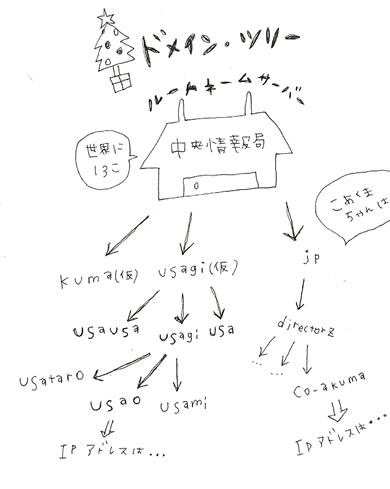 ドメイン・ツリー
ルートネームサーバー
中央情報局
世界に
13こ
こあくま
ちゃんは
kuma(仮) usagi(仮) jp
usausa usagi usa directorz
... ...
usataro usao usami co-akuma
IPアドレスは...
IPアドレスは・・・